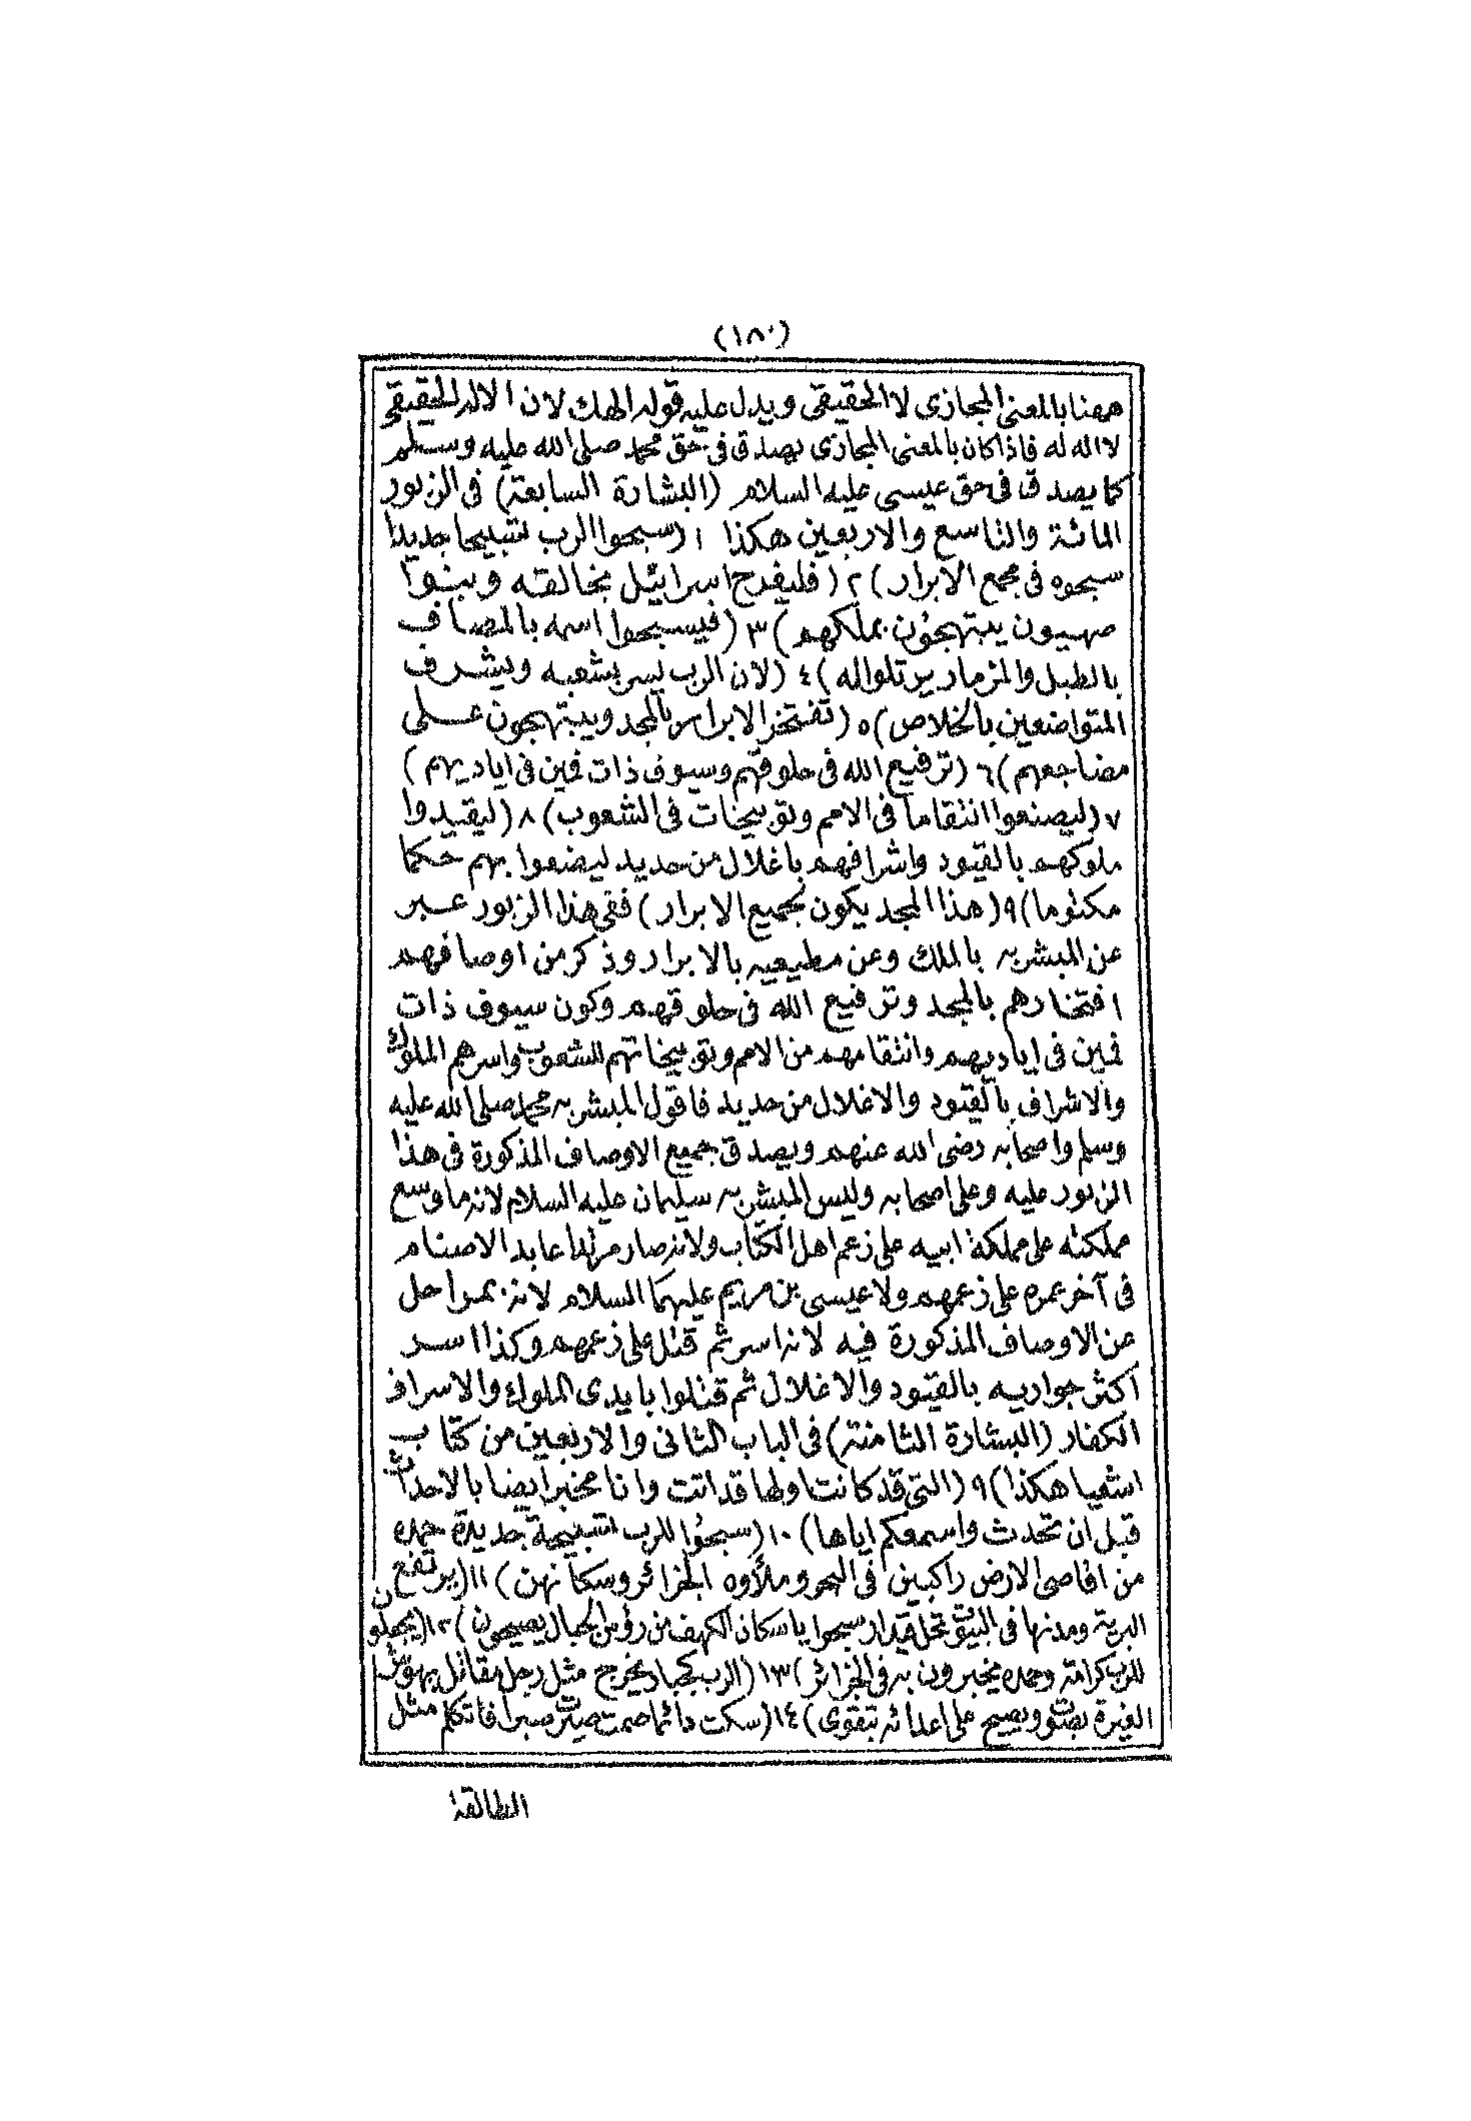 (١٨٠)
ههنا بالمعنى المجازى لا الحقيقى ويدل عليه قوله الهك لان الاله الحقيقى
لا اله له فاذا كان بالمعنى المجازى يصدق فى حق محمد صلى الله عليه وسلم
كما يصدق فى حق عيسى عليه السلام (البشارة السابعة) فى الزبور
المائة والتاسع والاربعين هكذا ١ (سبحوا الرب تسبيحا جديدا
سبحوه فى مجمع الابرار) ٢ (فليفرح اسرائيل بخالقه وبنوا
صهيون يبتهجون بملكهم) ٣ (فيسبحوا اسمه بالمصاف
بالطبل والمزمار يرتلوا له) ٤ (لان الرب يسر بشعبه ويشرف
المتواضعين بالخلاص) ٥ (تفتخر الابرار بالمجد ويبتهجون على
مضاجعهم) ٦ (ترفيع الله فى حلوقهم وسيوف ذات فمين فى اياديهم)
٧ (ليصنعوا انتقاما فى الامم وتوبيخات فى الشعوب) ٨ (ليقيدوا
ملوكهم بالقيود واشرافهم باغلال من حديد ليضعوا بهم حكما
مكتوما) ٩ (هذا المجد يكون لجميع الابرار) ففى هذا الزبور عبر
عن المبشر به بالملك وعن مطيعيه بالابرار وذكر من اوصافهم
افتخارهم بالمجد وترفيع الله فى حلوقهم وكون سيوف ذات
فمين فى اياديهم وانتقامهم من الامم وتوبيخاتهم للشعوب واسرهم الملوك
والاشراف بالقيود والاغلال من حديد فاقول المبشر به محمد صلى الله عليه
وسلم واصحابه رضى الله عنهم ويصدق جميع الاوصاف المذكورة فى هذا
الزبور عليه وعلى اصحابه وليس المبشر به سليمان عليه السلام لانه ما وسع
مملكته على مملكة ابيه على زعم اهل الكتاب ولانه صار مرتدا عابد الاصنام
فى آخر عمره على زعمهم ولا عيسى بن مريم عليهما السلام لانه بمراحل
عن الاوصاف المذكورة فيه لانه اسر ثم قتل على زعمهم وكذا اسر
اكثر حواريه بالقيود والاغلال ثم قتلوا بايدى الملوك والاسراف
الكفار (البشارة الثامنة) فى الباب الثانى والاربعين من كتاب
اشعيا هكذا) ٩ (التى قد كانت اولها قد اتت وانا مخبر ايضا بالاحداث
قبل ان تحدث واسمعكم اياها) ١٠ (سبحوا للرب تسبيحة جديدة حمده
من اقاصى الارض راكبين فى البحر وملأوه الجزائر وسكانهن) ١١ (يرتفع
البرية ومدنها فى البيوت تحل قيدار سبحوا يا سكان الكهف من رؤس الجبال يصيحون) ١٢ (يجعلون
للرب كرامة وحمده يخبرون به فى الجزائر) ١٣ (الرب كجبار يخرج مثل رجل مقاتل يهوش
الغيرة يصوت ويصيح على اعدائه يتقوى) ١٤ (سكت دائما صمت صبرت صبرا فاتكلم مثل
الطالقة